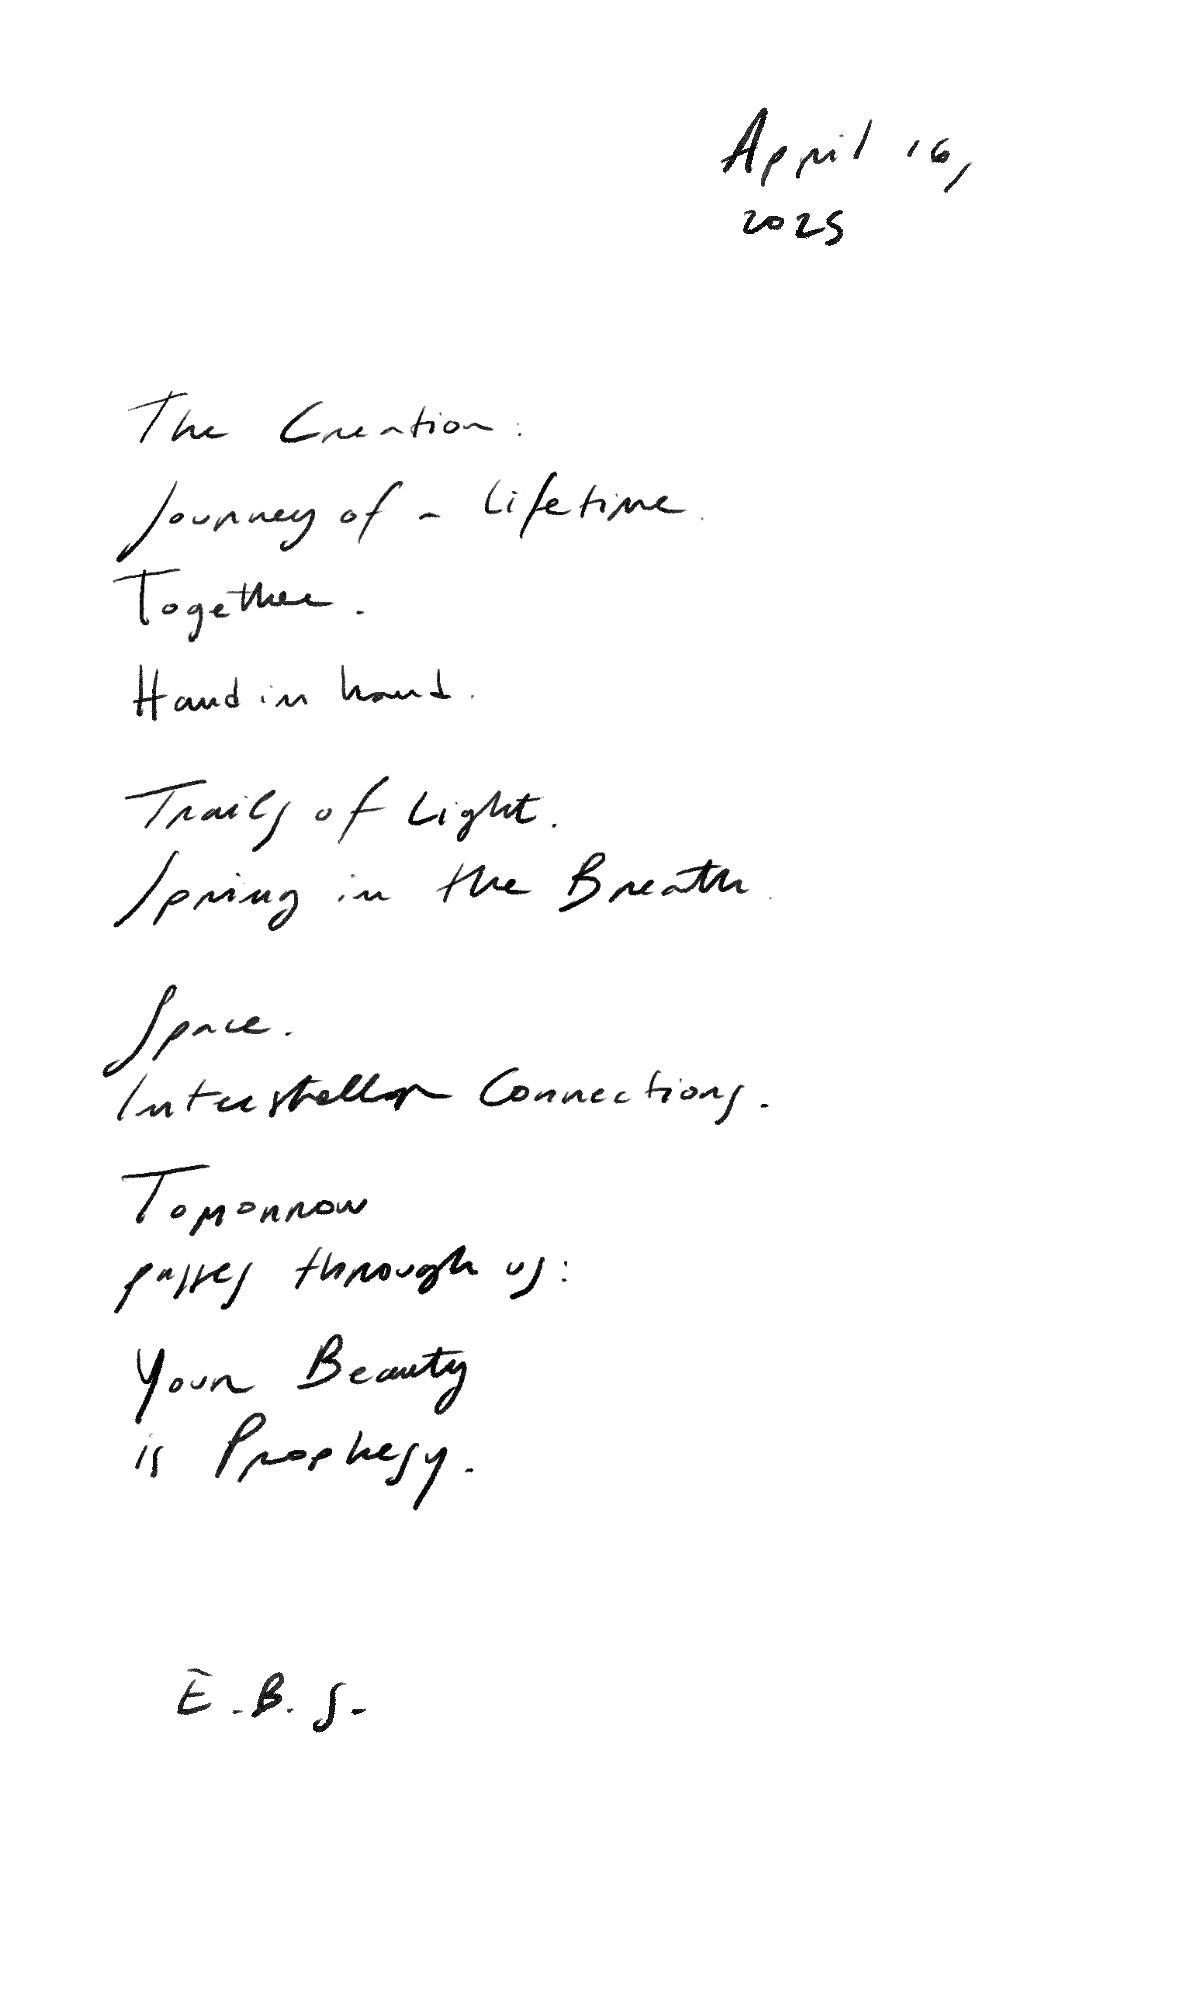 April 16,
2025
The Creation:
Journey of a Lifetime.
Together.
Hand in hand.
Trails of Light.
Spring in the Breath.
Space.
Interstellar Connections.
Tomorrow
passes through us:
Your Beauty
is Prophesy.
E.B.S.